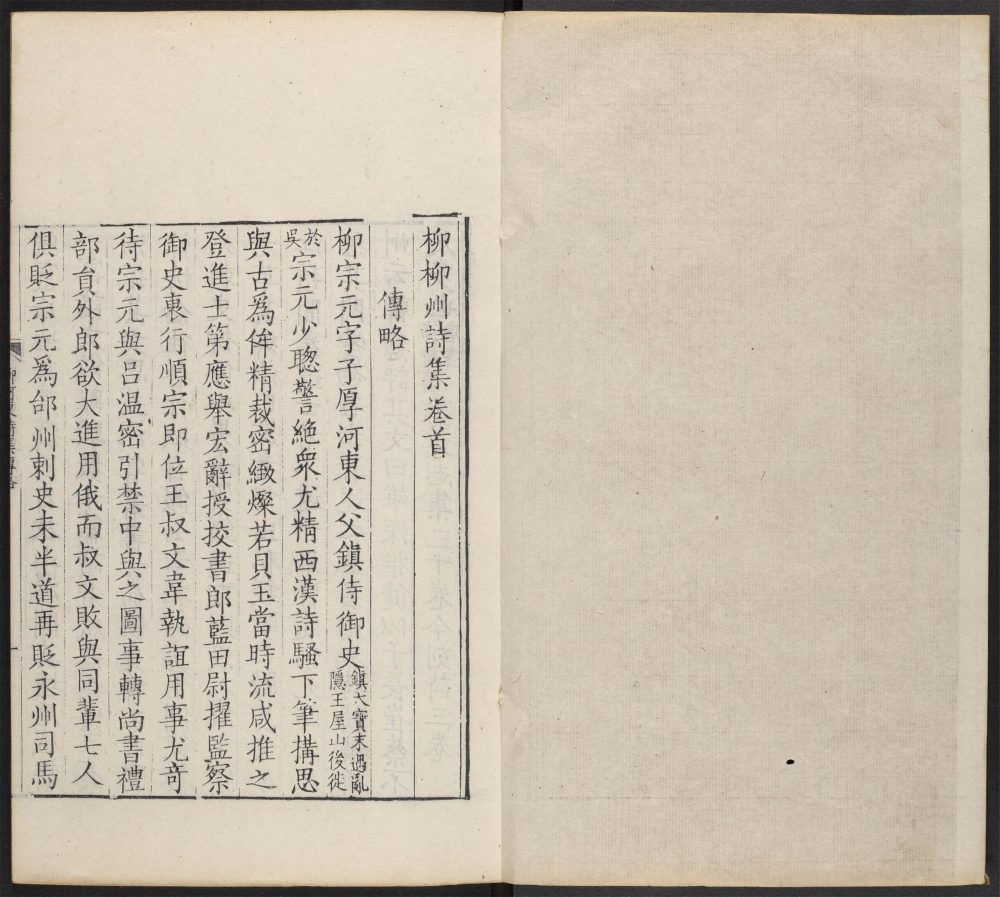 柳柳州詩集卷首
傳略
柳宗元字子厚河東人父鎮侍御史鎮天寶末遇亂隱王屋山後徙
於吳宗元少聰警絕衆尤精西漢詩騷下筆搆思
與古爲侔精裁密緻燦若貝玉當時流咸推之
登進士第應舉宏辭授挍書郎藍田尉擢監察
御史裏行順宗即位王叔文韋執誼用事尤竒
待宗元與呂温密引禁中與之圖事轉尚書禮
部貟外郎欲大進用俄而叔文敗與同輩七人
俱貶宗元爲邰州刺史未半道再貶永州司馬
一